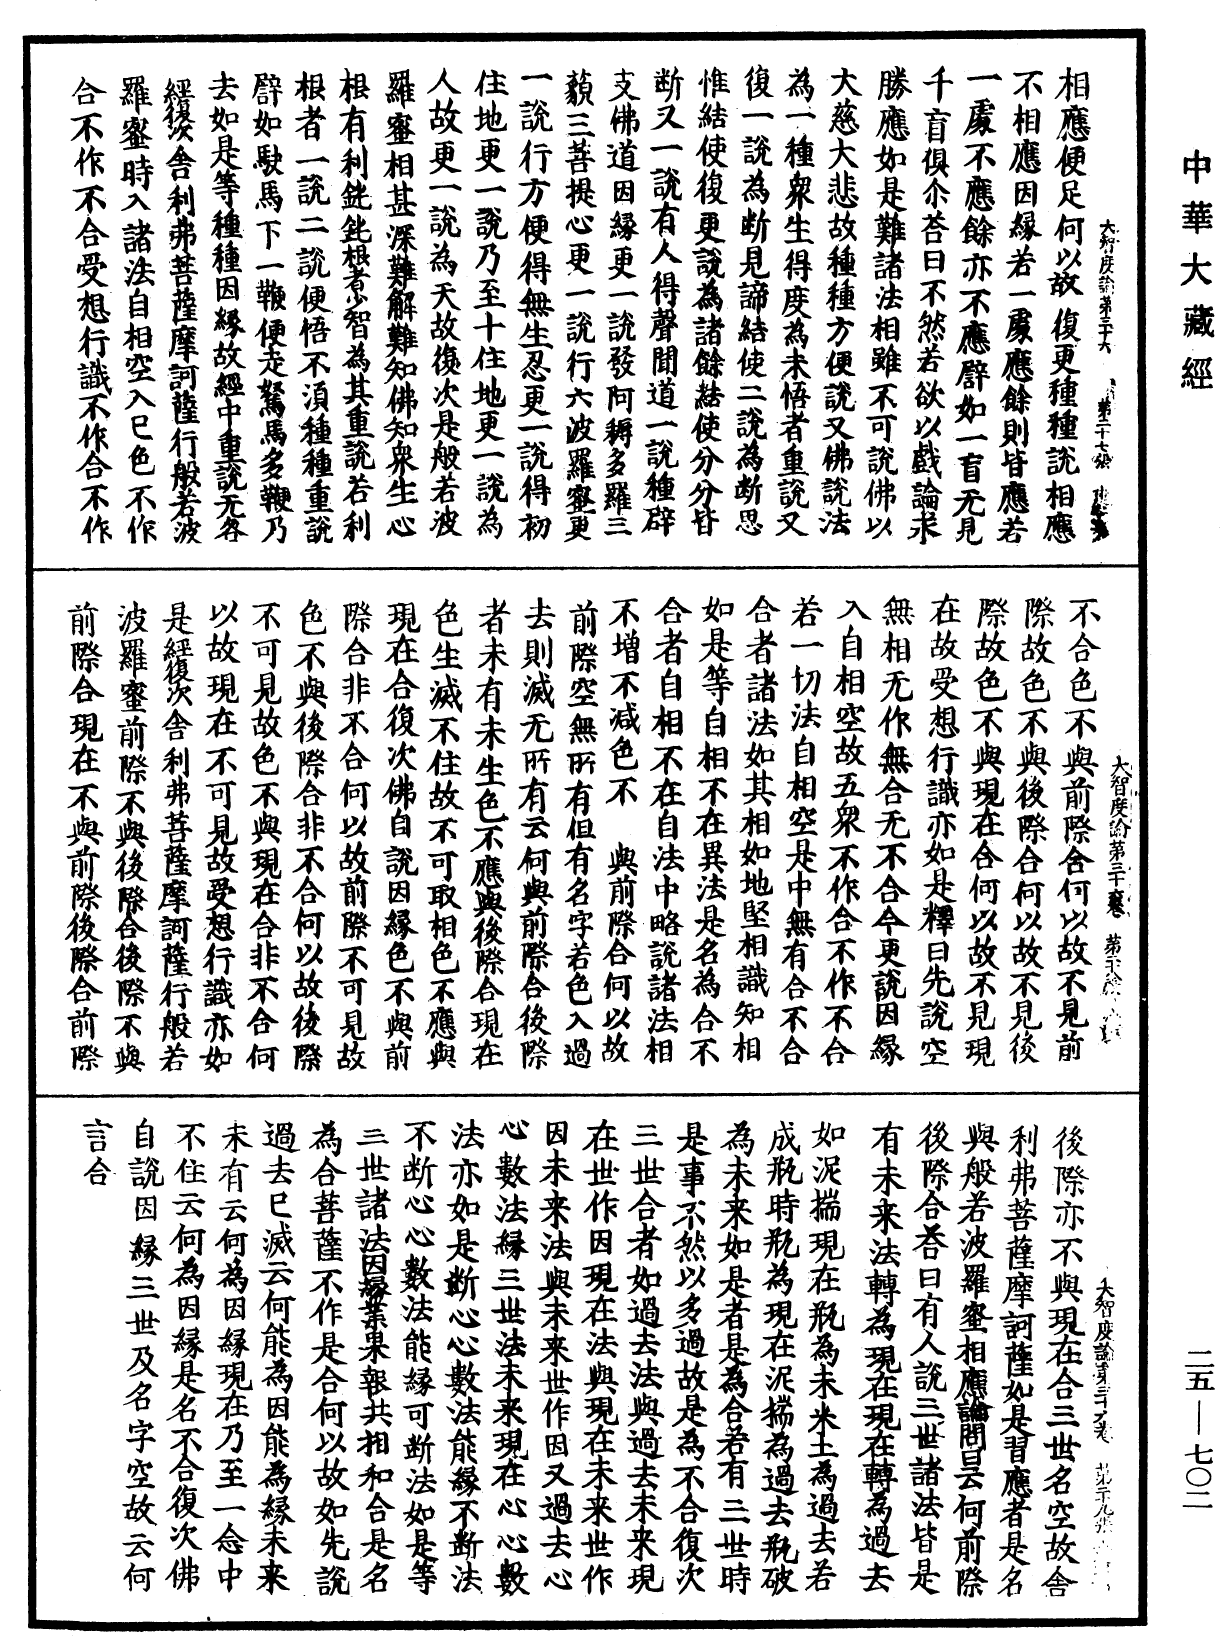 中華大藏經
大智度論第三十六 第二十七張
相應便足何以故復更種種說相應
不相應因緣若一處應餘則皆應若
一處不應餘亦不應譬如一盲无見
千盲俱尒荅曰不然若欲以戲論求
勝應如是難諸法相雖不可說佛以
大慈大悲故種種方便說又佛說法
為一種衆生得度為未悟者重說又
復一說為斷見諦結使二說為斷思
惟結使復更說為諸餘結使分分皆
断又一說有人得聲聞道一說種辟
支佛道因緣更一說發阿耨多羅三
藐三菩提心更一說行六波羅蜜更
一說行方便得無生忍更一說得初
住地更一說乃至十住地更一說為
人故更一說為天故復次是般若波
羅蜜相甚深難解難知佛知衆生心
根有利鈍鈍根者少智為其重說若利
根者一說二說便悟不湏種種重說
譬如駃馬下一鞭便走駑馬多鞭乃
去如是等種種因緣故經中重說无咎
經復次舍利弗菩薩摩訶薩行般若波
羅蜜時入諸法自相空入已色不作
合不作不合受想行識不作合不作
大智度論第三十六卷
不合色不與前際合何以故不見前
際故色不與後際合何以故不見後
際故色不與現在合何以故不見現
在故受想行識亦如是釋曰先說空
無相无作無合无不合今更說因緣
入自相空故五衆不作合不作不合
若一切法自相空是中無有合不合
合者諸法如其相如地堅相識知相
如是等自相不在異法是名為合不
合者自相不在自法中略說諸法相
不增不减色不 與前際合何以故
前際空無所有但有名字若色入過
去則滅无所有云何與前際合後際
者未有未生色不應與後際合現在
色生滅不住故不可取相色不應與
現在合復次佛自說因緣色不與前
際合非不合何以故前際不可見故
色不與後際合非不合何以故後際
不可見故色不與現在合非不合何
以故現在不可見故受想行識亦如
是經復次舍利弗菩薩摩訶薩行般若
波羅蜜前際不與後際合後際不與
前際合現在不與前際後際合前際
大智度論第三十六卷
後際亦不與現在合三世名空故舍
利弗菩薩摩訶薩如是習應者是名
與般若波羅蜜相應論問曰云何前際
後際合荅曰有人說三世諸法皆是
有未来法轉為現在現在轉為過去
如泥揣現在瓶為未来土為過去若
成瓶時瓶為現在泥揣為過去瓶破
為未来如是者是為合若有三世時
是事不然以多過故是為不合復次
三世合者如過去法與過去未来現
在世作因現在法與現在未来世作
因未来法與未来世作因又過去心
心數法緣三世法未来現在心心數
法亦如是斷心心數法能緣不斷法
不断心心數法能緣可斷法如是等
三世諸法因緣業果報共相和合是名
為合菩薩不作是合何以故如先說
過去已滅云何能為因能為緣未来
未有云何為因緣現在乃至一念中
不住云何為因緣是名不合復次佛
自說因緣三世及名字空故云何
言合
二五—七〇二